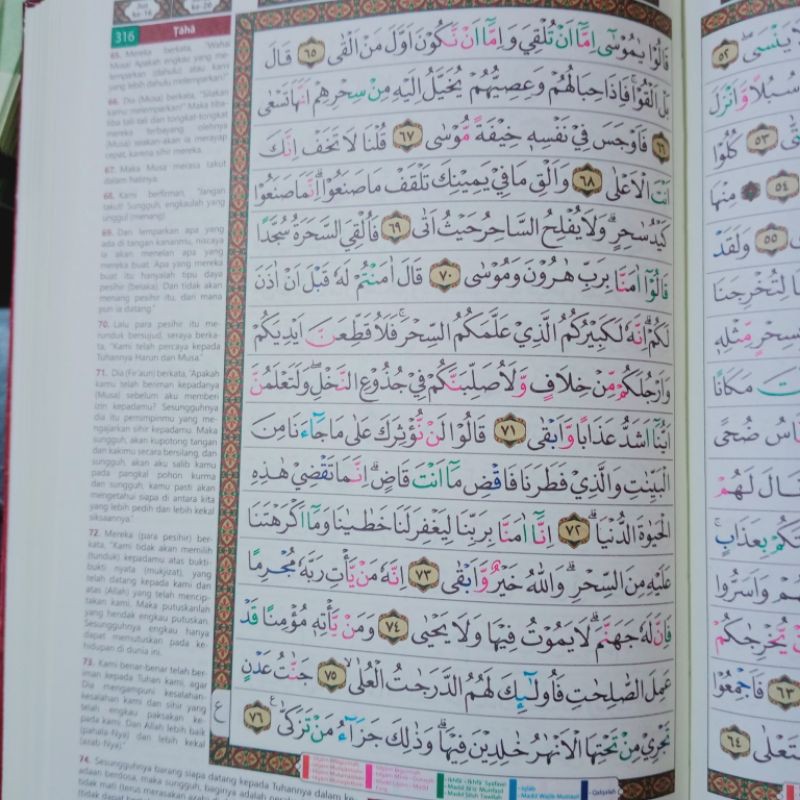 316 Ṭāhā
65. Mereka berkata, "Wahai
Musa! Apakah engkau yang me-
lemparkan (dahulu) atau kami
yang lebih dahulu melemparkan?"
66. Dia (Musa) berkata, "Silakan
kamu melemparkan!" Maka tiba-
tiba tali-tali dan tongkat-tongkat
mereka terbayang olehnya
(Musa) seakan-akan ia merayap
cepat, karena sihir mereka.
67. Maka Musa merasa takut
dalam hatinya.
68. Kami berfirman, "Jangan
takut! Sungguh, engkaulah yang
unggul (menang).
69. Dan lemparkan apa yang
ada di tangan kananmu, niscaya
ia akan menelan apa yang
mereka buat. Apa yang mereka
buat itu hanyalah tipu daya
pesihir (belaka). Dan tidak akan
menang pesihir itu, dari mana
pun ia datang."
70. Lalu para pesihir itu me-
runduk bersujud, seraya berka-
ta, "Kami telah percaya kepada
Tuhannya Harun dan Musa."
71. Dia (Fir'aun) berkata, "Apakah
kamu telah beriman kepadanya
(Musa) sebelum aku memberi
izin kepadamu? Sesungguhnya
dia itu pemimpinmu yang me-
ngajarkan sihir kepadamu. Maka
sungguh, akan kupotong tangan
dan kakimu secara bersilang, dan
sungguh, akan aku salib kamu
pada pangkal pohon kurma
dan sungguh, kamu pasti akan
mengetahui siapa di antara kita
yang lebih pedih dan lebih kekal
siksaannya."
72. Mereka (para pesihir) ber-
kata, "Kami tidak akan memilih
(tunduk) kepadamu atas bukti-
bukti nyata (mukjizat), yang
telah datang kepada kami dan
atas (Allah) yang telah mencip-
takan kami. Maka putuskanlah
yang hendak engkau putuskan.
Sesungguhnya engkau hanya
dapat memutuskan pada ke-
hidupan di dunia ini.
73. Kami benar-benar telah ber-
iman kepada Tuhan kami, agar
Dia mengampuni kesalahan-
kesalahan kami dan sihir yang
telah engkau paksakan ke-
pada kami. Dan Allah lebih baik
(pahala-Nya) dan lebih kekal
(azab-Nya)."
74. Sesungguhnya barang siapa datang kepada Tuhannya dalam ke-
قَالُوْا يٰمُوْسٰٓى اِمَّآ اَنْ تُلْقِيَ وَاِمَّآ اَنْ نَّكُوْنَ اَوَّلَ مَنْ اَلْقٰى ٦٥ قَالَ
بَلْ اَلْقُوْاۚ فَاِذَا حِبَالُهُمْ وَعِصِيُّهُمْ يُخَيَّلُ اِلَيْهِ مِنْ سِحْرِهِمْ اَنَّهَا تَسْعٰى
٦٦ فَاَوْجَسَ فِيْ نَفْسِهٖ خِيْفَةً مُّوْسٰى ٦٧ قُلْنَا لَا تَخَفْ اِنَّكَ
اَنْتَ الْاَعْلٰى ٦٨ وَاَلْقِ مَا فِيْ يَمِيْنِكَ تَلْقَفْ مَا صَنَعُوْاۗ اِنَّمَا صَنَعُوْا
كَيْدُ سٰحِرٍۗ وَلَا يُفْلِحُ السَّاحِرُ حَيْثُ اَتٰى ٦٩ فَاُلْقِيَ السَّحَرَةُ سُجَّدًا
قَالُوْٓا اٰمَنَّا بِرَبِّ هٰرُوْنَ وَمُوْسٰى ٧٠ قَالَ اٰمَنْتُمْ لَهٗ قَبْلَ اَنْ اٰذَنَ
لَكُمْۗ اِنَّهٗ لَكَبِيْرُكُمُ الَّذِيْ عَلَّمَكُمُ السِّحْرَۚ فَلَاُقَطِّعَنَّ اَيْدِيَكُمْ
وَاَرْجُلَكُمْ مِّنْ خِلَافٍ وَّلَاُصَلِّبَنَّكُمْ فِيْ جُذُوْعِ النَّخْلِۖ وَلَتَعْلَمُنَّ
اَيُّنَآ اَشَدُّ عَذَابًا وَّاَبْقٰى ٧١ قَالُوْا لَنْ نُّؤْثِرَكَ عَلٰى مَا جَاۤءَنَا مِنَ
الْبَيِّنٰتِ وَالَّذِيْ فَطَرَنَا فَاقْضِ مَآ اَنْتَ قَاضٍۗ اِنَّمَا تَقْضِيْ هٰذِهِ
الْحَيٰوةَ الدُّنْيَاۗ ٧٢ اِنَّآ اٰمَنَّا بِرَبِّنَا لِيَغْفِرَ لَنَا خَطٰيٰنَا وَمَآ اَكْرَهْتَنَا
عَلَيْهِ مِنَ السِّحْرِۗ وَاللّٰهُ خَيْرٌ وَّاَبْقٰى ٧٣ اِنَّهٗ مَنْ يَّأْتِ رَبَّهٗ مُجْرِمًا
فَاِنَّ لَهٗ جَهَنَّمَۗ لَا يَمُوْتُ فِيْهَا وَلَا يَحْيٰى ٧٤ وَمَنْ يَّأْتِهٖ مُؤْمِنًا قَدْ
عَمِلَ الصّٰلِحٰتِ فَاُولٰۤىِٕكَ لَهُمُ الدَّرَجٰتُ الْعُلٰىۙ ٧٥ جَنّٰتُ عَدْنٍ
تَجْرِيْ مِنْ تَحْتِهَا الْاَنْهٰرُ خٰلِدِيْنَ فِيْهَاۗ وَذٰلِكَ جَزٰۤؤُا مَنْ تَزَكّٰى ࣖ ٧٦
ع